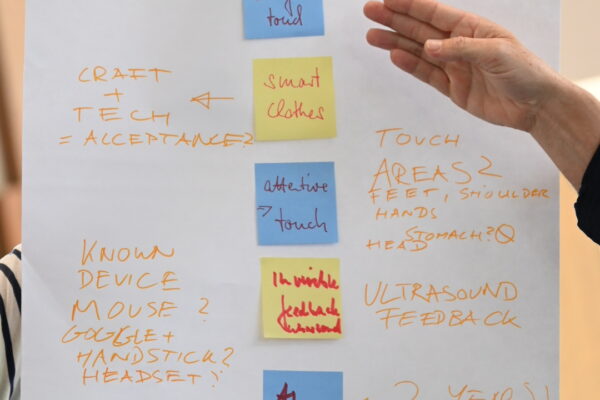 touch
smart
clothes
CRAFT
+
TECH
= ACCEPTANCE?
←
attentive
→ touch
TOUCH
AREAS?
FEET, SHOULDER
HANDS
STOMACH?
HEAD
KNOWN
DEVICE
MOUSE ?
GOGGLE +
HANDSTICK?
HEADSET?
Invisible
feedback
ULTRASOUND
FEEDBACK
? YEARS